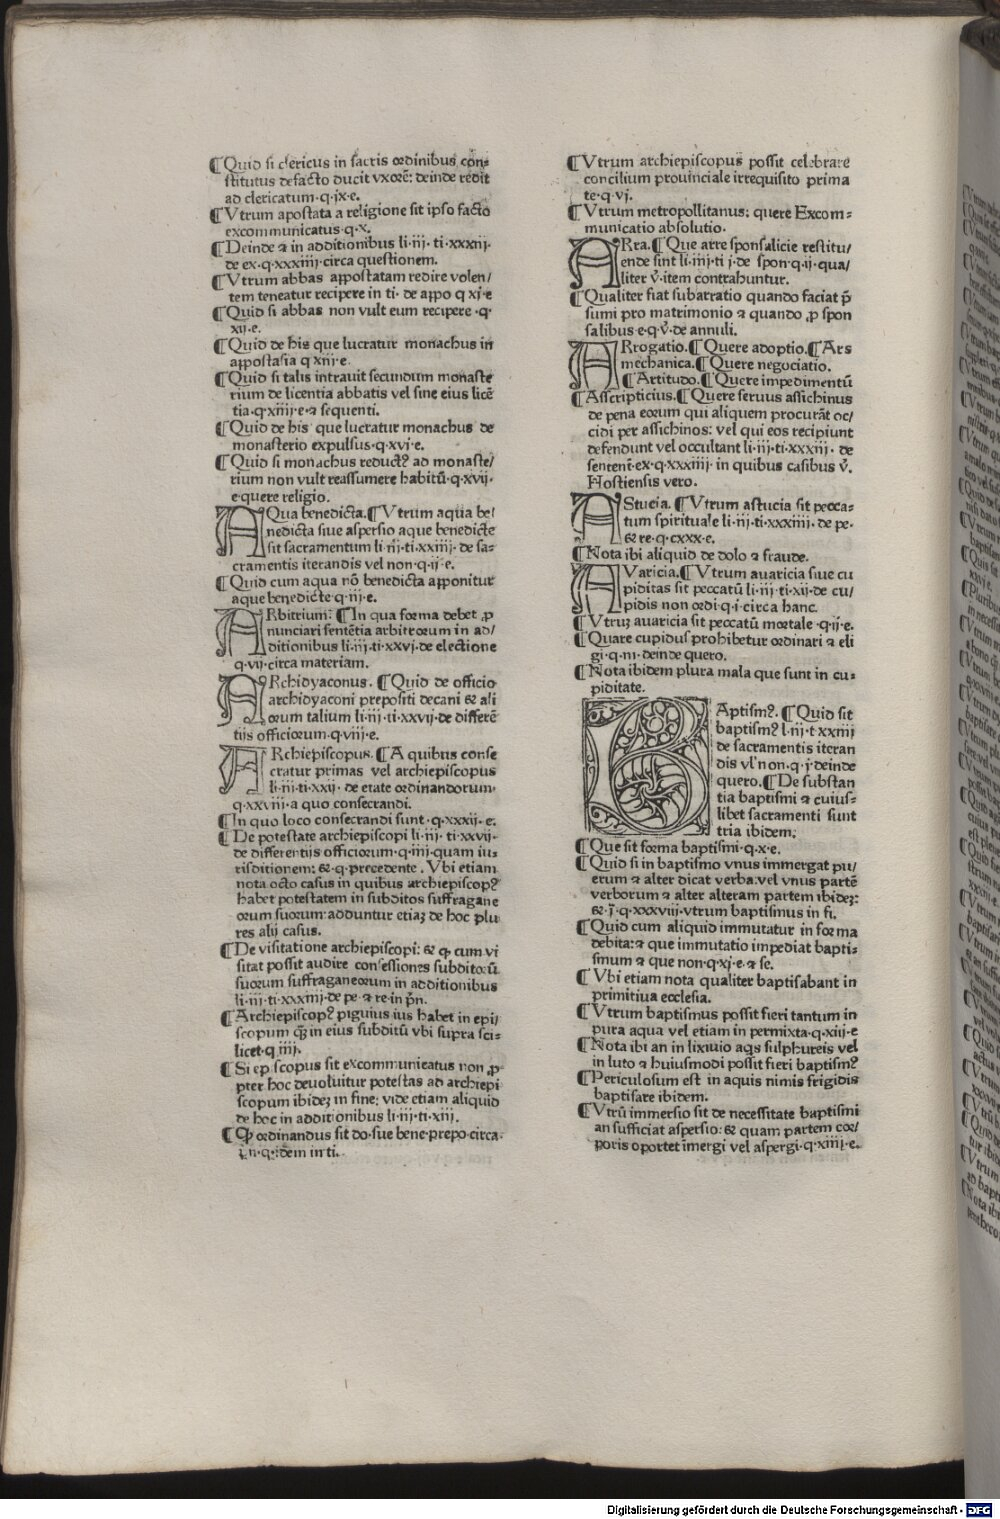 ¶Quid si clericus in sacris ordinibus con⸗
stitutus defacto ducit vxorē: deinde redit
ad clericatum·q·jx·e.
¶Vtrum apostata a religione sit ipso facto
excommunicatus·q·x.
¶Deinde ⁊ in additionibus li·iij·ti·xxxij·
de ex·q·xxxiiij·circa questionem.
¶Vtrum abbas appostatam redire volen/
tem teneatur recipere in ti·de appo q xj·e
¶Quid si abbas non vult eum recipere·q·
xij·e.
¶Quid de his que lucratur monachus in
appostasia q xiij·e.
¶Quid si talis intrauit secundum monaste
rium de licentia abbatis vel sine eius licē
tia·q·xiiij·e·⁊ sequenti.
¶Quid de his que lucratur monachus de
monasterio expulsus·q·xvj·e.
¶Quid si monachus reductꝰ ad monaste/
rium non vult reassumere habitū·q·xvij·
e·quere religio.
AQua benedicta.¶Vtrum aqua be/
nedicta siue aspersio aque benedicte
sit sacramentum li·iij·ti·xxiiij·de sa⸗
cramentis iterandis vel non·q·ij·e.
¶Quid cum aqua nō benedicta apponitur
aque benedicte·q·iij·e.
ARbitrium: ¶In qua forma debet ꝓ
nunciari sentētia arbitrorum in ad/
ditionibus li·iij·ti·xxvj·de electione
q·vij·circa materiam.
ARchidyaconus. ¶Quid de officio
archidyaconi prepositi decani ⁊ ali
orum talium li·iij·ti·xxvij·de differē
tijs officiorum·q·viij·e.
ARchiepiscopus.¶A quibus conse
cratur primas vel archiepiscopus
li·iij·ti·xxij·de etate ordinandorum·
q·xxviij·a quo consecrandi.
¶In quo loco consecrandi sunt·q·xxxij·e.
¶De potestate archiepiscopi li·iij·ti·xxvij·
de differentijs officiorum·q·iiij·quam iu⸗
risditionem: ⁊·q·precedente. Vbi etiam
nota octo casus in quibus archiepiscopꝰ
habet potestatem in subditos suffragane
orum suorum: adduntur etiaꝫ de hoc plu
res alij casus.
¶De visitatione archiepiscopi: ⁊ ꝙ cum vi
sitat possit audire confessiones subditorū
suorum suffraganeorum in additionibus
li·iij·ti·xxxiiij·de pe·⁊ re·in p̄n.
¶Archiepiscopꝰ piguius ius habet in epi/
scopum ꝙ̄ in eius subditū vbi supra sci⸗
licet·q iiij.
¶Si episcopus sit excommunicatus non ꝓ⸗
pter hoc deuoluitur potestas ad archiepi
scopum ibideꝫ in fine: vide etiam aliquid
de hoc in additionibus li·iij·ti·xiij.
¶Ꝙ ordinandus sit do·sue bene·prepo·circa·
n·q·idem in ti.
¶Vtrum archiepiscopus possit celebrare
concilium prouinciale irrequisito prima
te·q·vj.
¶Vtrum metropollitanus: quere Excom⸗
municatio absolutio.
ARra.¶Que arre sponsalicie restitu/
ende sint li·iiij·ti j·de spon·q·ij·qua/
liter v̄·item contrahuntur.
¶Qualiter fiat subarratio quando faciat p̄
sumi pro matrimonio ⁊ quando ꝓ spon
salibus·e·q·v̄·de annuli.
ARrogatio.¶Quere adoptio.¶Ars
mechanica.¶Quere negociatio.
¶Artitudo.¶Quere impedimentū
¶Asscripticius.¶Quere seruus assichinus
de pena eorum qui aliquem procurāt oc/
cidi per assichinos: vel qui eos recipiunt
defendunt vel occultant li·iij·ti·xxxij·de
sentent̄·ex·q·xxxiiij·in quibus casibus v̄.
Hostiensis vero.
AStucia. ¶Vtrum astucia sit pecca⸗
tum spirituale li·iij·ti·xxxiiij·de pe·
⁊ re·q·cxxx·e.
¶Nota ibi aliquid de dolo ⁊ fraude.
AVaricia.¶Vtrum auaricia siue cu
piditas sit peccatū li·iij·ti·xij·de cu/
pidis non ordi·q·i·circa hanc.
¶Vtruꝫ auaricia sit peccatū mortale·q·ij·e.
¶Quare cupidus prohibetur ordinari ⁊ eli
gi·q·iij·deinde quero.
¶Nota ibidem plura mala que sunt in cu⸗
piditate.
BAptismꝰ. ¶Quid sit
baptismꝰ l·iij·t xxiiij
de sacramentis iteran
dis vl̓ non·q·j·deinde
quero.¶De substan
tia baptismi ⁊ cuius⸗
libet sacramenti sunt
tria ibidem;
¶Que sit forma baptismi·q·x·e.
¶Quid si in baptismo vnus immergat pu/
erum ⁊ alter dicat verba·vel vnus partē
verborum ⁊ alter alteram partem ibideꝫ:
⁊·j̄·q·xxxviij·vtrum baptismus in fi.
¶Quid cum aliquid immutatur in forma
debita: ⁊ que immutatio impediat bapti⸗
smum ⁊ que non·q·xj·e·⁊ se.
¶Vbi etiam nota qualiter baptisabant in
primitiua ecclesia.
¶Vtrum baptismus possit fieri tantum in
pura aqua vel etiam in permixta·q·xiij·e
¶Nota ibi an in lixiuio aqs sulphureis vel
in luto ⁊ huiusmodi possit fieri baptismꝰ
¶Periculosum est in aquis nimis frigidis
baptisare ibidem.
¶Vtrū immersio sit de necessitate baptismi
an sufficiat aspersio: ⁊ quam partem cor/
poris oportet imergi vel aspergi·q·xiiij·e.
Digitalisierung gefördert durch die Deutsche Forschungsgemeinschaft - DFG